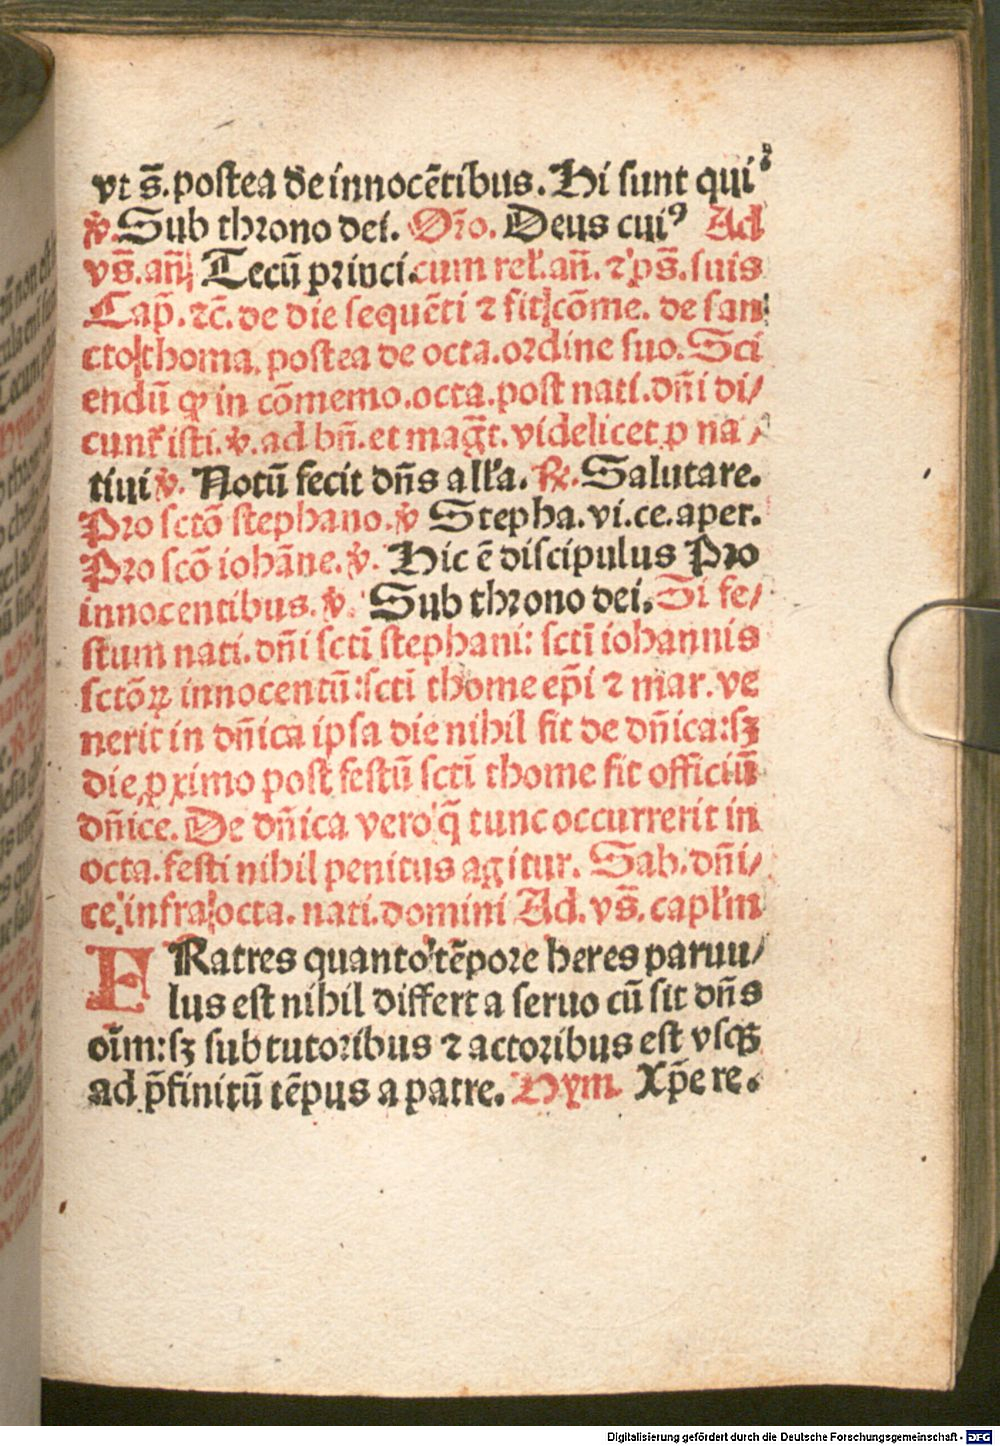 vt s̄. postea de innocētibus. Hi sunt qui
℣. Sub throno dei. Or̄o. Deus cuiꝰ Ad
vs̄. an̄ Tecū princi. cum rel'. an̄. ⁊ ps̄. suis
Cap̄. ⁊c̄. de die sequēti ⁊ fit cōme. de san
cto thoma. postea de octa. ordine suo. Sci
endū ꝙ in cōmemo. octa. post nati. dn̄i di/
cunt᷑ isti. ℣. ad bn̄. et maḡt. videlicet p na
tiui ℣. Notū fecit dn̄s all'a. ℟. Salutare.
Pro sctō stephano. ℣ Stepha. vi. ce. aper.
Pro scō iohāne. ℣. Hic ē discipulus Pro
innocentibus. ℣. Sub throno dei. Si fe/
stum nati. dn̄i sctī stephani: sctī iohannis
sctōꝝ innocentū: sctī thome ep̄i ⁊ mar. ve
nerit in dn̄ica ipsa die nihil fit de dn̄ica: sꝫ
die ꝓximo post festū sctī thome fit officiū
dn̄ice. De dn̄ica vero q̄ tunc occurrerit in
octa. festi nihil penitus agitur. Sab. dn̄i/
ce infra octa. nati. domini Ad. vs̄. capl'm
FRatres quanto tēpore heres paruu/
lus est nihil differt a seruo cū sit dn̄s
oīm: sꝫ sub tutoribus ⁊ actoribus est vsqꝫ
ad p̄finitū tēpus a patre. Hym. Xp̄e re.
Digitalisierung gefördert durch die Deutsche Forschungsgemeinschaft - DFG